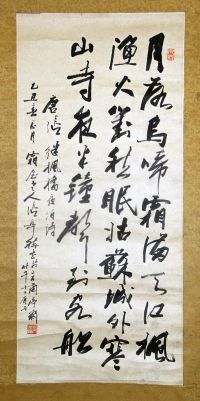 月落烏啼霜滿天江楓
漁火對愁眠姑蘇城外寒
山寺夜半鐘聲到客船
唐張繼楓橋夜泊詩
乙丑春三月霜屋老人